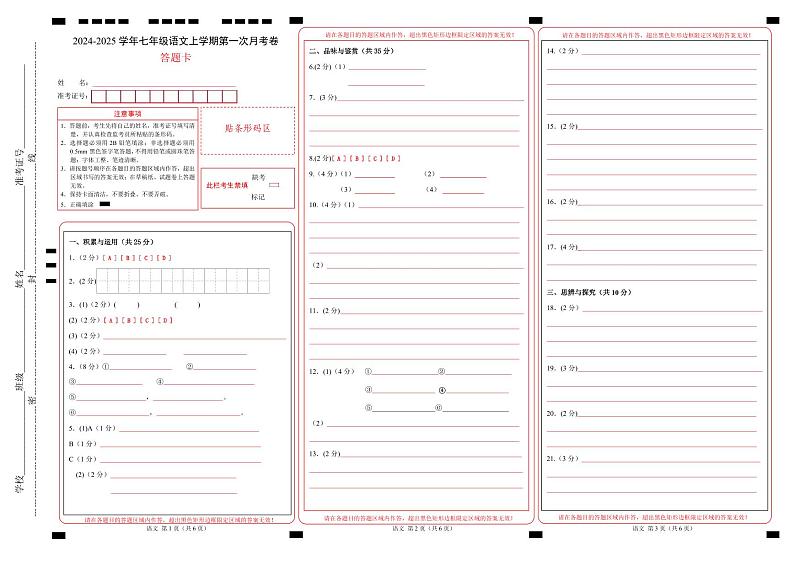 准考证号
姓名
班级
学校
线
封
密
2024-2025 学年七年级语文上学期第一次月考卷
答题卡
姓 名：
准考证号：
注意事项
1．答题前，考生先将自己的姓名，准考证号填写清
楚，并认真检查监考员所粘贴的条形码。
2．选择题必须用 2B 铅笔填涂；非选择题必须用
0.5mm 黑色签字笔答题，不得用铅笔或圆珠笔答
题；字体工整、笔迹清晰。
3．请按题号顺序在各题目的答题区域内作答，超出
区域书写的答案无效；在草稿纸、试题卷上答题
无效。
4．保持卡面清洁，不要折叠、不要弄破。
5．正确填涂
贴条形码区
此栏考生禁填
缺考
标记
一、积累与运用（共 25 分）
1．（2 分）[ A ] [ B ] [ C ] [ D ]
2．（2 分）
3．(1)（2 分）（ ） （ ）
(2)（2 分）[ A ] [ B ] [ C ] [ D ]
(3)（2 分）
(4)（2 分）
4．（8 分）① ②
③ ④
⑤ ，
⑥ ，
5．(1)A（1 分）
B（1 分）
C（1 分）
(2)（2 分）
请在各题目的答题区域内作答，超出黑色矩形边框限定区域的答案无效！
语文 第 1 页（共 6 页）
请在各题目的答题区域内作答，超出黑色矩形边框限定区域的答案无效！
二、品味与鉴赏（共 35 分）
6.(2 分)（1）
7．(3 分)
8.(2 分)[ A ] [ B ] [ C ] [ D ]
9．（4 分）（1） （2）
（3） （4）
10．(4 分)（1）
（2）
11．(2 分)
12．(1)（4 分） ① ②
③ ④
⑤ ⑥
（2）
13．(2 分)
请在各题目的答题区域内作答，超出黑色矩形边框限定区域的答案无效！
语文 第 2 页（共 6 页）
请在各题目的答题区域内作答，超出黑色矩形边框限定区域的答案无效！
14．（2 分）
15．（2 分）
16．（2 分）
17．（4 分）
三、思辨与探究（共 10 分）
18．（2 分）
19．（3 分）
20．（2 分）
21．（3 分）
请在各题目的答题区域内作答，超出黑色矩形边框限定区域的答案无效！
语文 第 3 页（共 6 页）